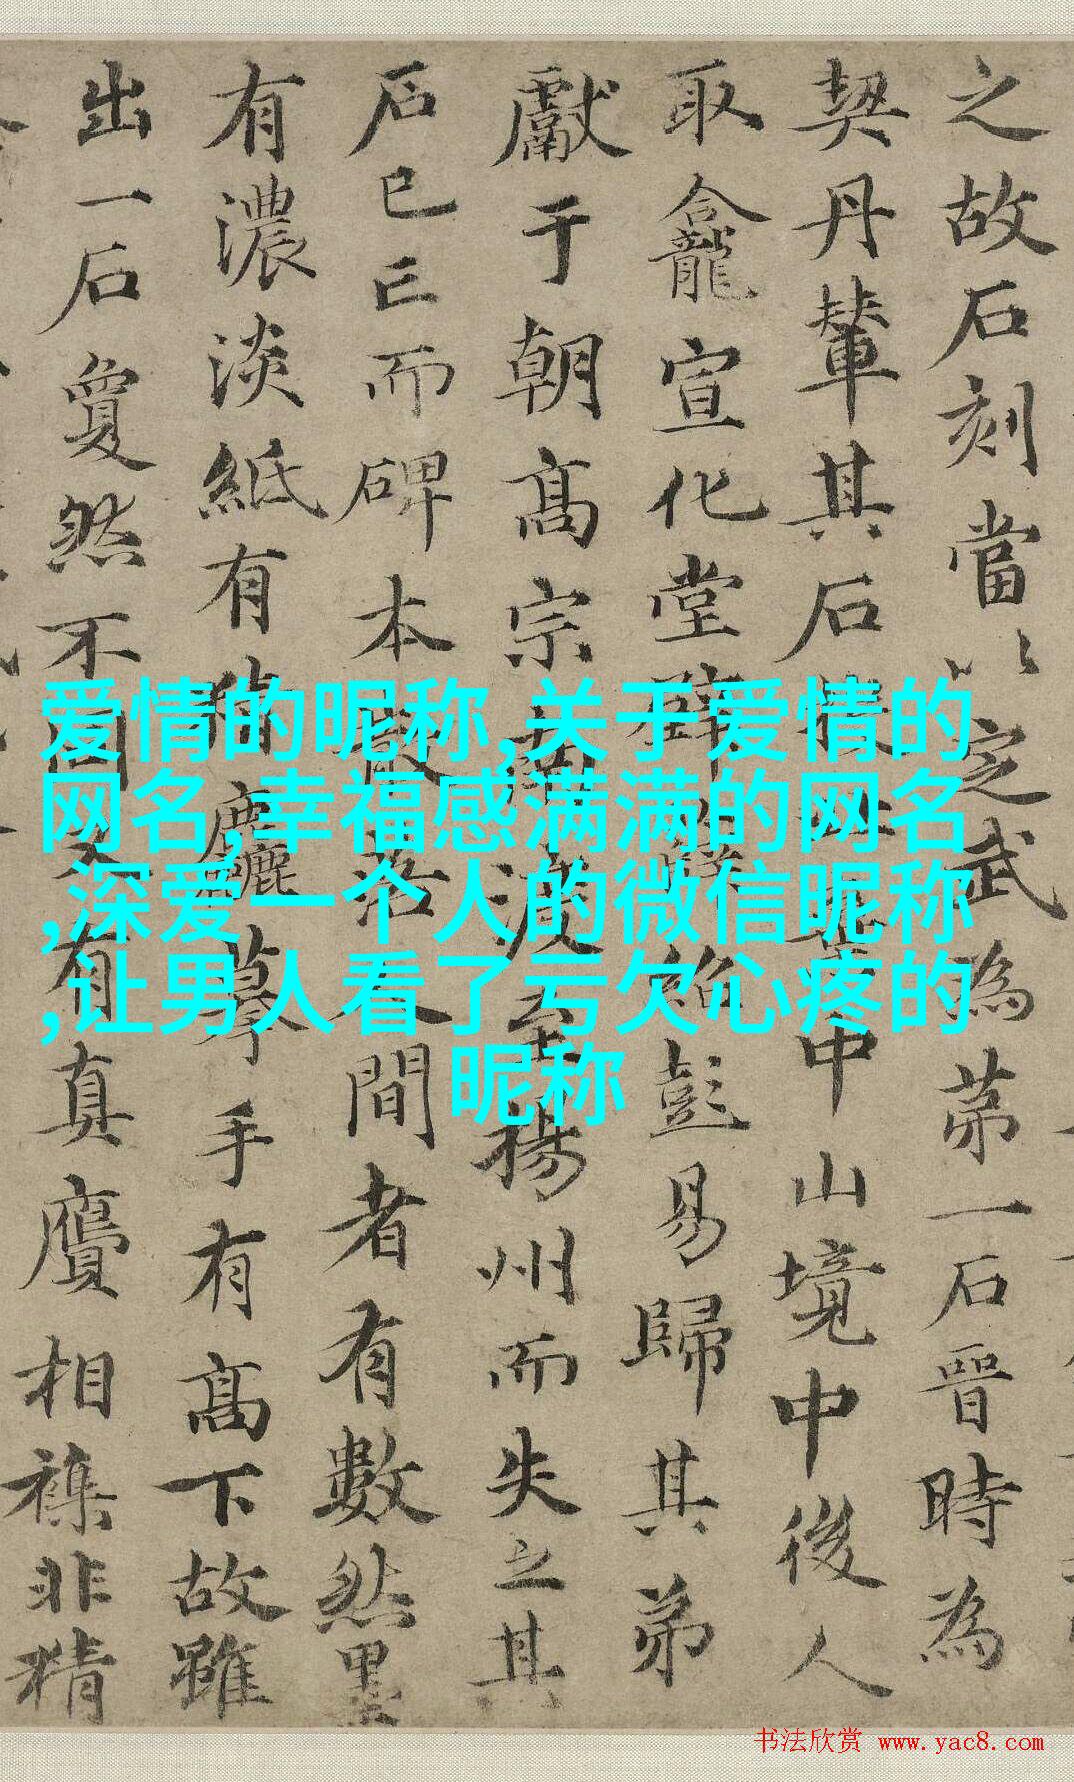 之故石刻當以定武為第一石晉時為
契丹輦其石中山境中後人
取龕宣化堂壁薛紹彭易歸其弟
獻于朝高宗南渡至揚州而失之其
石已亡而碑本散落人間者有數然墨
有濃淡紙有麤摹手有高下故雖
出一石敻然不同又有真贋相襍非精
爱情的昵称,关于爱情的
网名,幸福感满满的网名
,深爱一个人的微信昵称
,让男人看了亏欠心疼的
昵称
书法欣赏 www.yac8.com